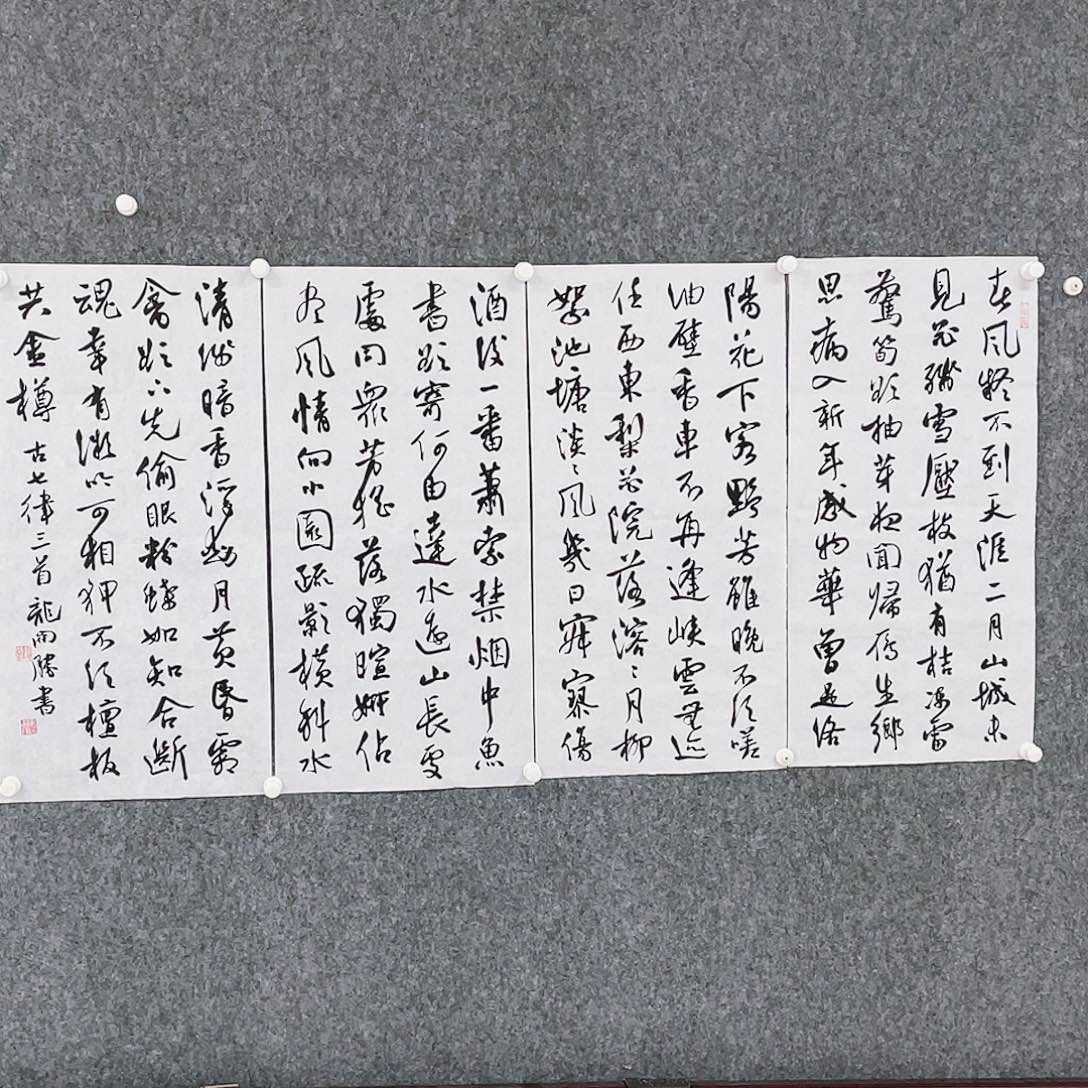 春風疑不到天涯二月山城未
見花殘雪壓枝猶有桔凍雷
驚筍欲抽芽夜聞歸雁生鄉
思病入新年感物華曾是洛
陽花下客野芳雖晚不須嗟
油壁香車不再逢峽雲無跡
任西東梨花院落溶々月柳
絮池塘淡々風幾日寂寥傷
酒後一番蕭索禁烟中魚
書欲寄何由達水遠山長處
處同衆芳搖落獨暄妍佔
盡風情向小園疏影橫斜水
清淺暗香浮動月黃昏霜
禽欲下先偷眼粉蝶如知合斷
魂幸有微吟可相狎不須檀板
共金樽 古七律三首 龍雨勝書